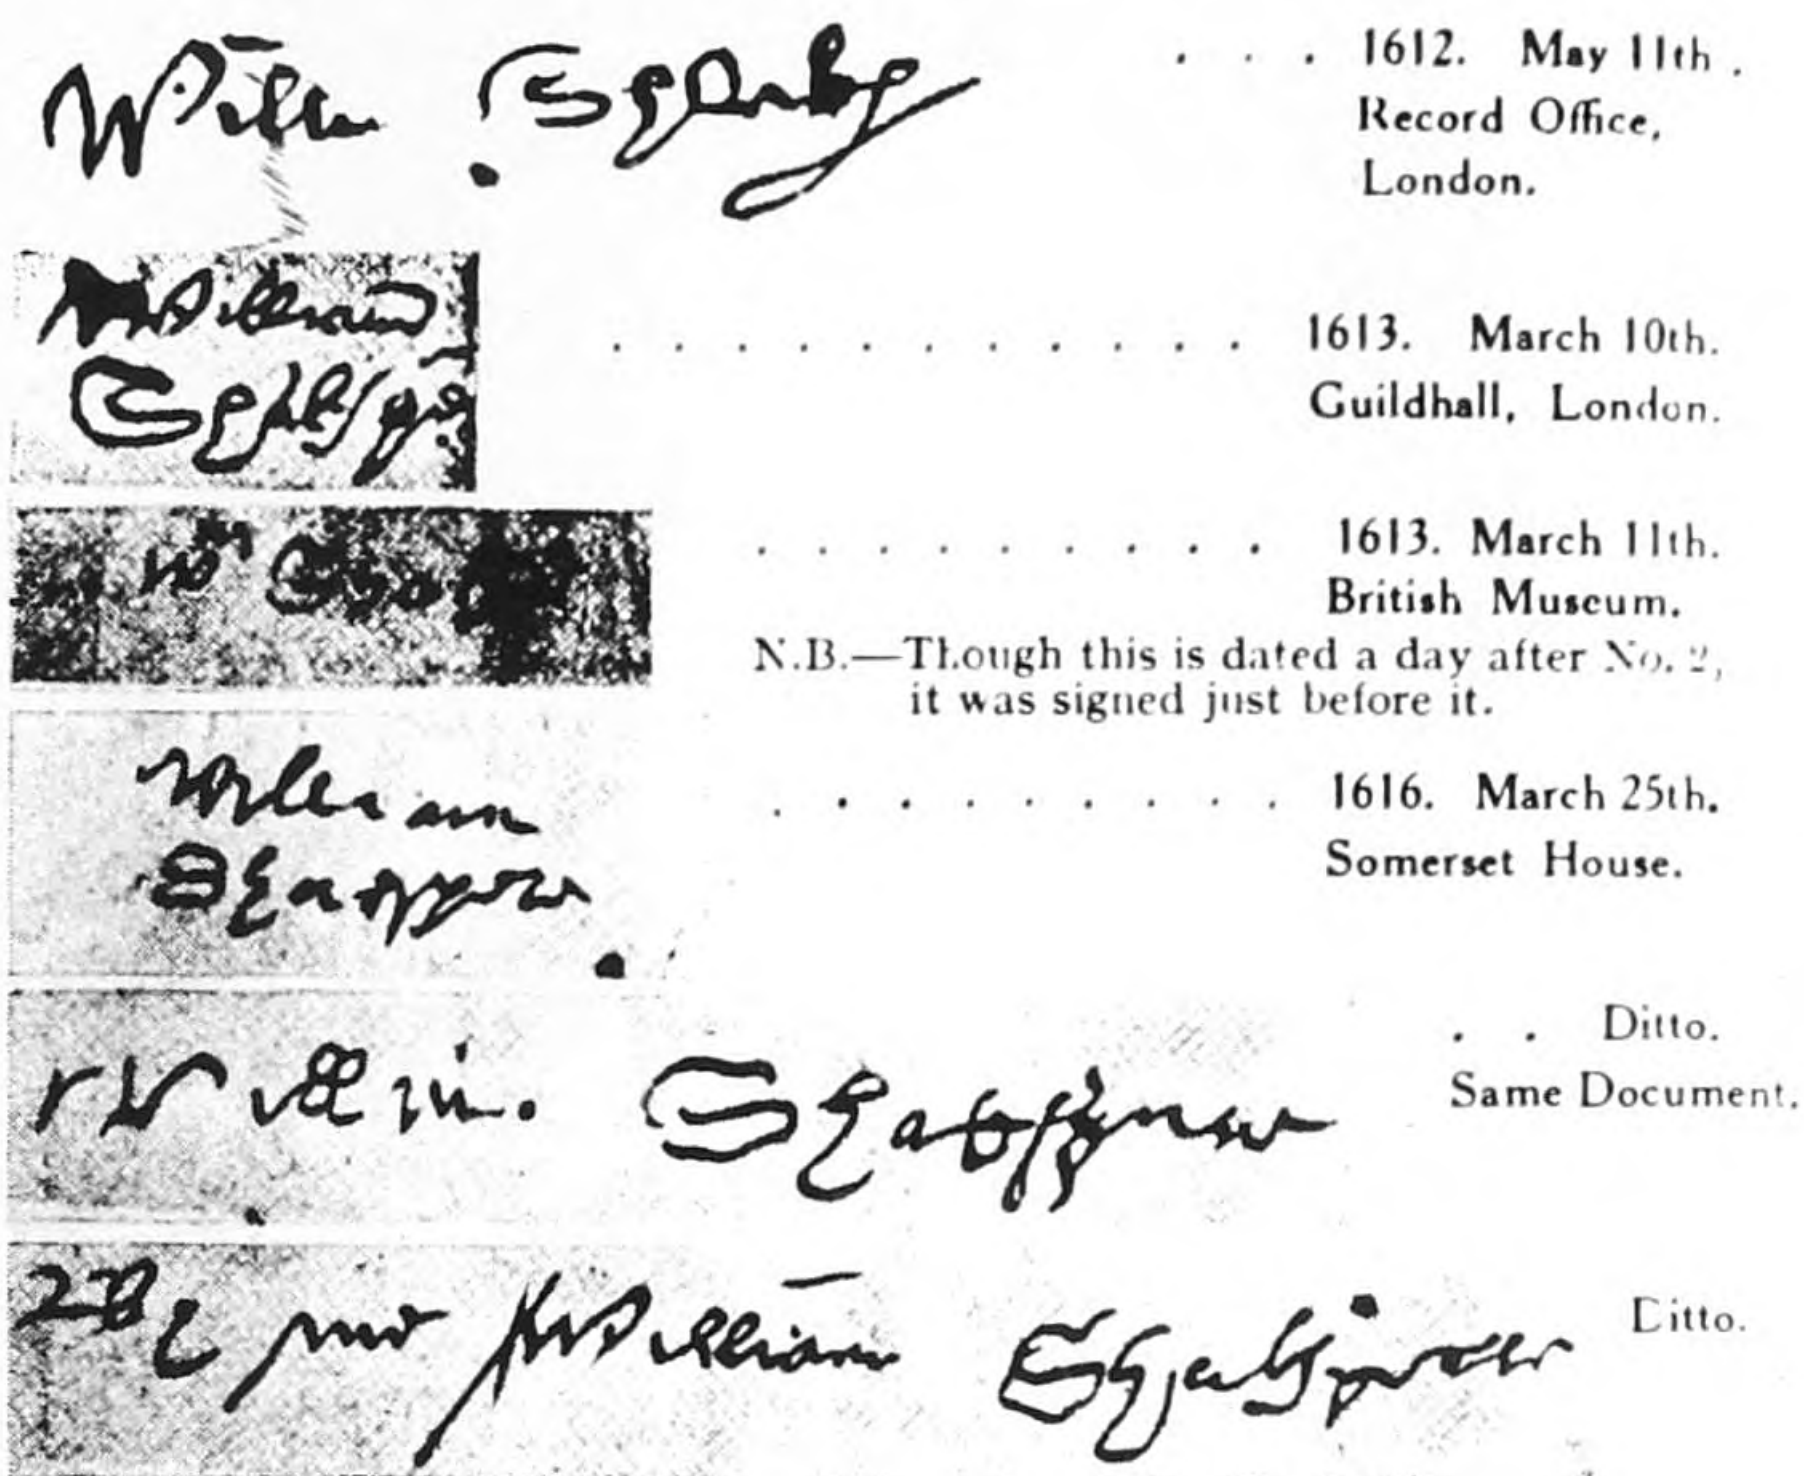 Willm Shakp . . . 1612. May 11th.
Record Office,
London.
William . . . . . . . . . . . 1613. March 10th.
Shakspe Guildhall, London.
Wm . . . . . . . . . 1613. March 11th.
British Museum.
N.B.—Though this is dated a day after No. 2,
it was signed just before it.
William . . . . . . . . . 1616. March 25th.
Shakspere Somerset House.
Willm Shakspere . . Ditto.
Same Document.
By me William Shakspeare Ditto.